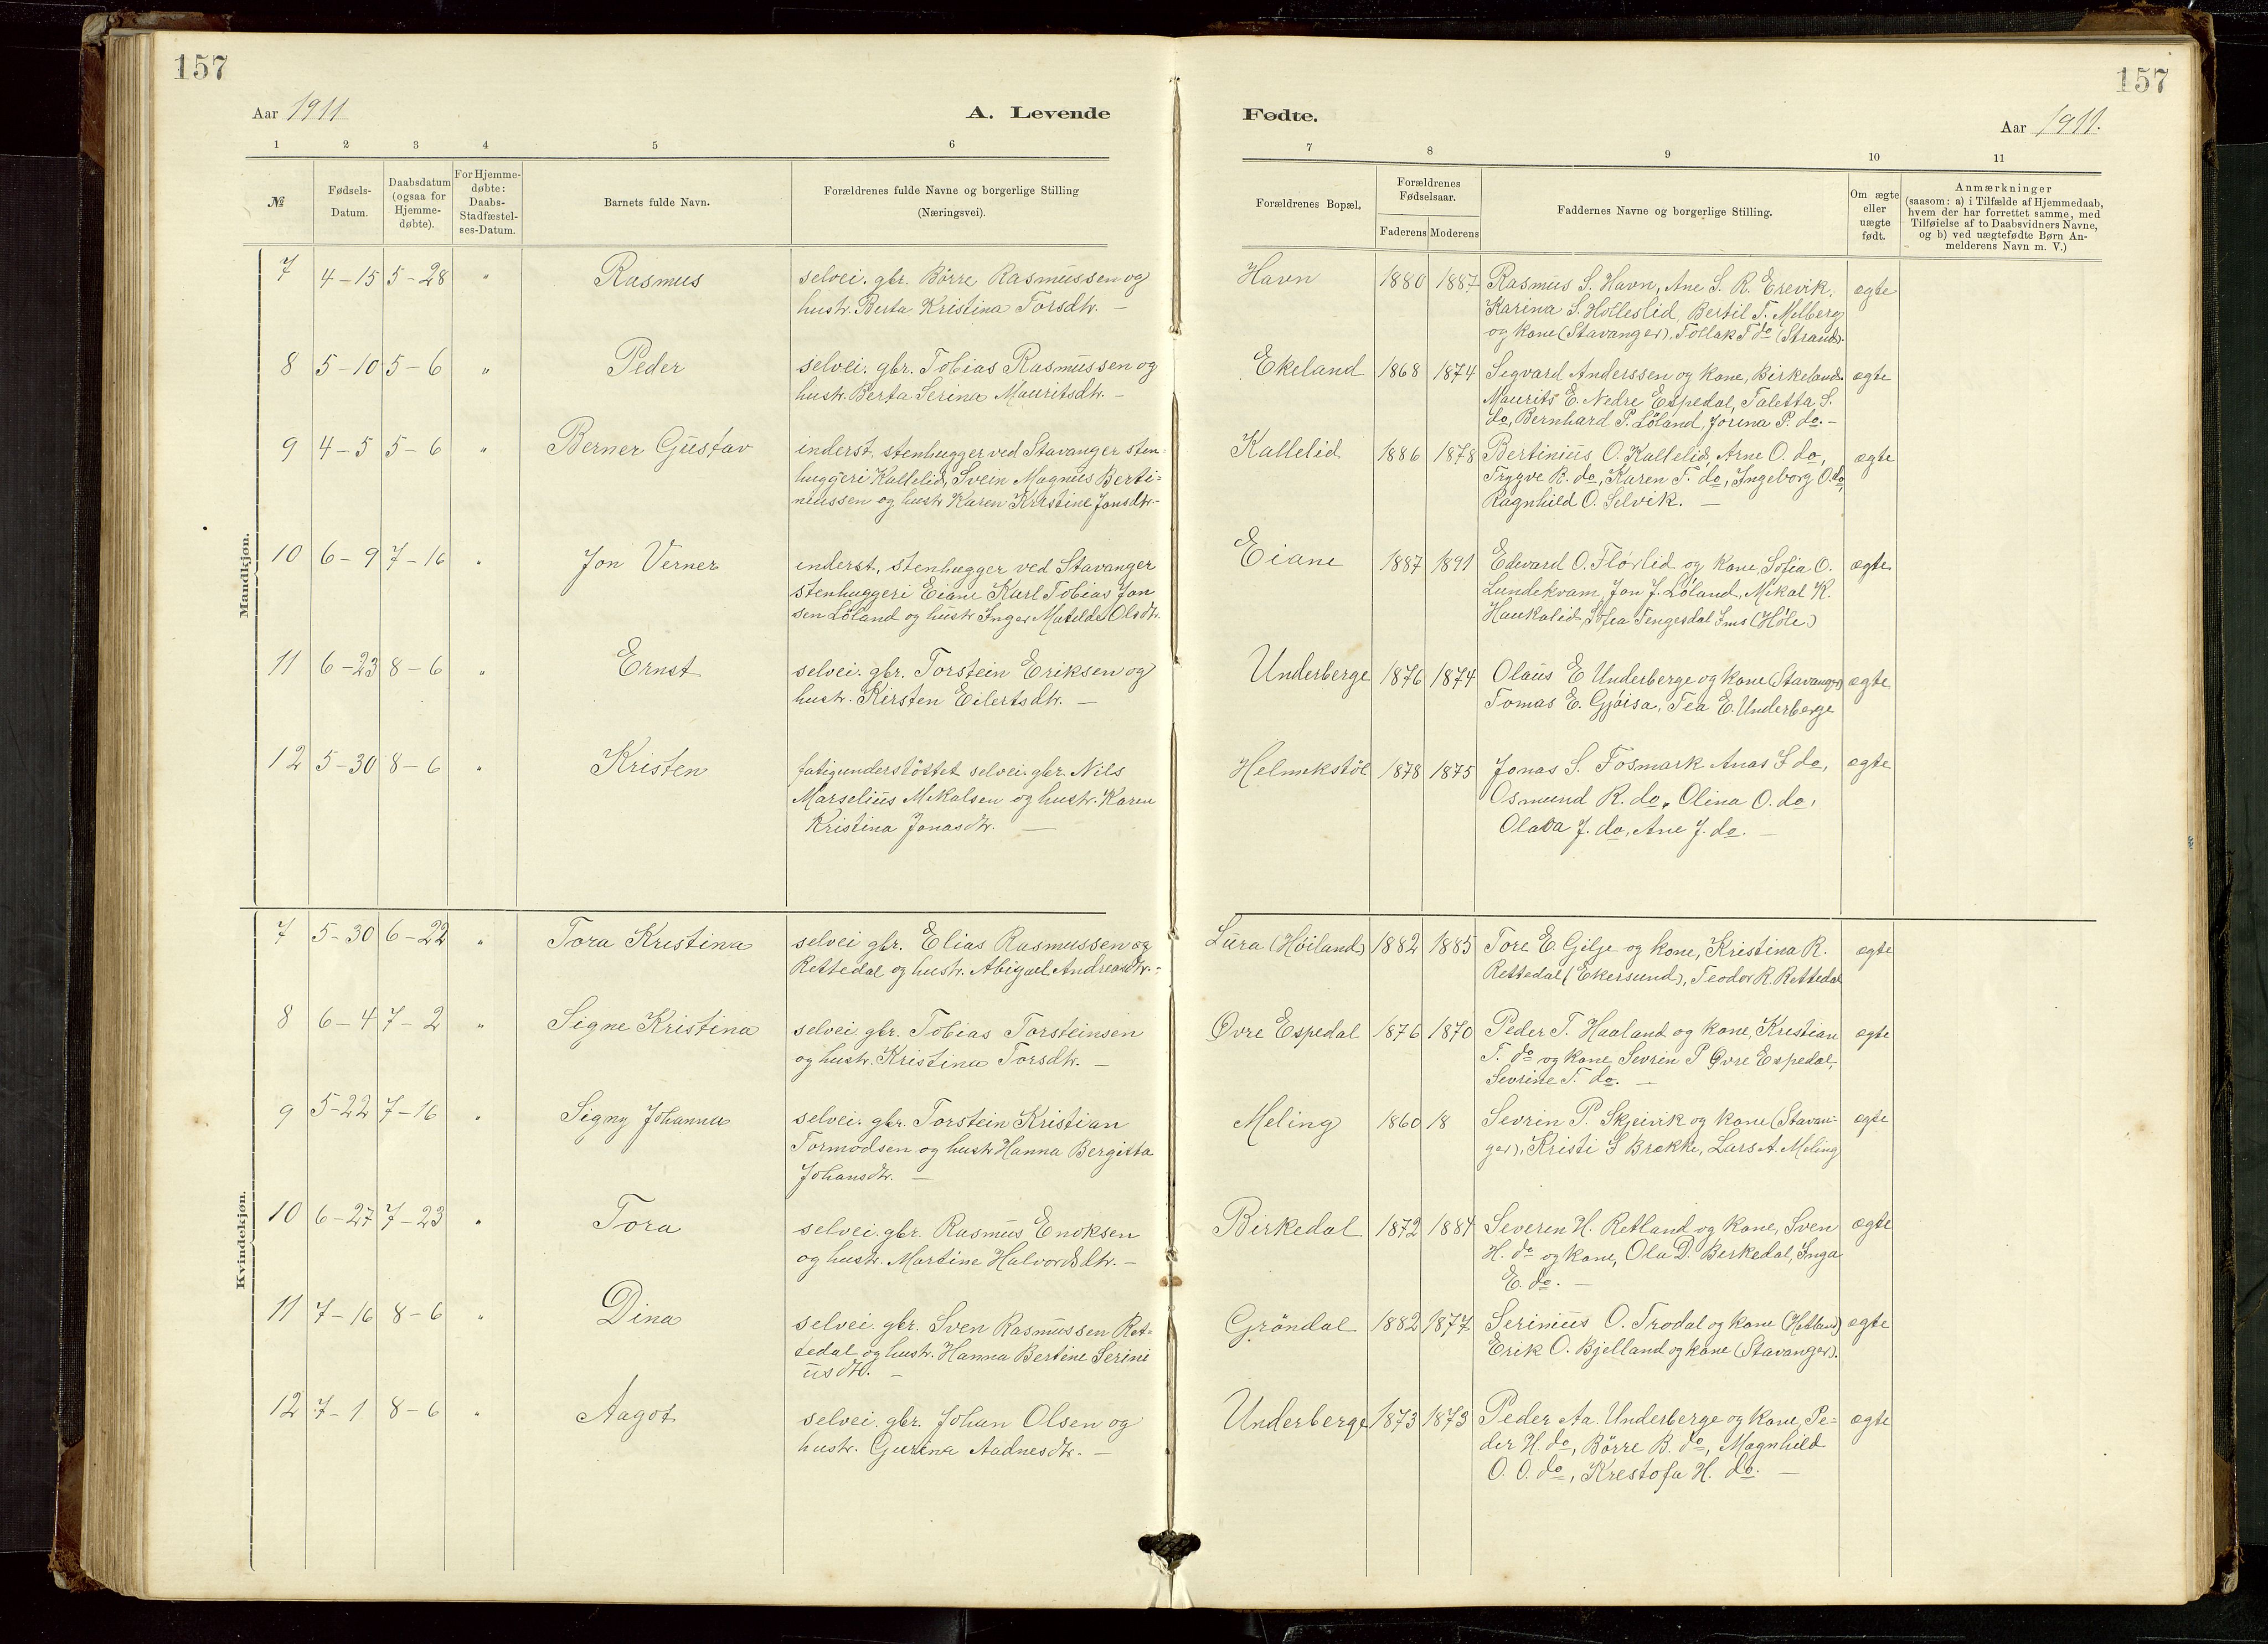 157
157
Aar 1911
A. Levende
Fødte.
Aar 1911.
1 2 3 4 5 6 7 8 9 10 11
№
Fødsels-Datum.
Daabsdatum (ogsaa for Hjemme-døbte).
For Hjemme-døbte: Daabs-Stadfæstel-ses-Datum.
Barnets fulde Navn.
Forældrenes fulde Navne og borgerlige Stilling
(Næringsvei).
Forældrenes Bopæl.
Forældrenes Fødselsaar.
Faderens Moderens
Faddernes Navne og borgerlige Stilling.
Om ægte eller uægte født.
Anmærkninger
(saasom: a) i Tilfælde af Hjemmedaab,
hvem der har forrettet samme, med
Tilføielse af to Daabsvidners Navne,
og b) ved uægtefødte Børn An-
melderens Navn m. V.)
Mandkjøn.
7 4-15 5-28 " Rasmus selvei. gbr. Börre Rasmussen og Havn 1880 1887 Rasmus S. Havn, Ane S. R. Erevik, ægte
hustr. Berta Kristina Torsdtr. — Karina S. Holleslid, Bertil T. Melberg
og kone (Stavanger), Tollak T do (Strand).
8 5-10 5-6 " Peder selvei. gbr. Tobias Rasmussen og Ekeland 1868 1874 Segvard Anderssen og kone, Birkeland. ægte
hustr. Berta Serina Mauritsdtr. — Maurits E. Nedre Espedal, Taletta S.
do, Bernhard P. Löland, Jorina P. do. —
9 4-5 5-6 " Berner Gustav inderst, stenhugger ved Stavanger sten- Kallelid 1886 1878 Bertinius O. Kallelid, Arne O. do, ægte
huggeri Kallelid, Svein Magnus Berti- Trygve B. do, Karen T. do, Ingeborg O. do,
niussen og hustr Karen Kristine Jonsdtr. Ragnhild O. Selvik. —
10 6-9 7-16 " Jon Verner inderst, stenhugger ved Stavanger Eiane 1887 1891 Edvard O. Flörlid og kone, Sofia O. ægte
stenhuggeri Eiane Karl Tobias Jon Lundekvam, Jon J. Löland, Mikal K.
sen Löland og hustr Inger Matilde Olsdtr. Haukalid, Tengesdal Ims (Höle)
11 6-23 8-6 " Ernst selvei. gbr. Torstein Eriksen og Underberge 1876 1874 Olaus E Underberge og kone (Stavanger) ægte
hustr. Kirsten Eilertsdtr. — Tomas E. Gjöisa, Tea E. Underberge
12 5-30 8-6 " Kristen fatigunderstöttet selvei. gbr. Nils Helmikstöl 1878 1875 Jonas S. Fosmark Anas J do, ægte
Marselius Mikalsen og hustr. Karen Osmund R. do, Olina O. do,
Kristina Jonasdtr. — Olava J. do, Ane J. do. —
Kvindekjøn.
7 5-30 6-22 " Tora Kristina selvei gbr. Elias Rasmussen og Lura (Höiland) 1882 1885 Tore E Gilje og kone, Kristina R. ægte
Rettedal og hustr. Abigael Andreasdtr. — Rettedal (Ekersund), Teodor R. Rettedal
8 6-4 7-2 " Signe Kristina selvei. gbr. Tobias Torsteinsen Ovre Espedal 1876 1870 Peder T. Haaland og kone, Kristian ægte
og hustr. Kristina Torsdtr. — T. do og kone, Sevrin P Øvre Espedal,
Sevrine T. do. —
9 5-22 7-16 " Signy Johanna selvei. gbr. Torstein Kristian Meling 1860 18 Sevrin P. Skjeivik og kone (Stavan- ægte
Tormodsen og hustr Hanna Bergitta ger), Kristi S Brekke, Lars A. Meling
Johansdtr. —
10 6-27 7-23 " Tora selvei. gbr. Rasmus Enoksen Birkedal 1872 1884 Severin H. Retland og kone, Sven ægte
og hustr. Martine Halvorsdtr. — H. do og kone, Ola D. Berkedal, Inga
E. do. —
11 7-16 8-6 " Dina selvei. gbr. Sven Rasmussen Ret- Gröndal 1882 1877 Serinius O. Trodal og kone (Hetland) ægte
tedal og hustr. Hanna Bertine Serini Erik O. Bjelland og kone (Stavanger).
usdtr. —
12 7-1 8-6 " Aagot selvei. gbr. Johan Olsen og Underberge 1873 1873 Peder Aa. Underberge og kone, Pe- ægte
hustr. Gurina Aadnesdtr. — der H. do, Börre B. do, Magnhild
O. O. do, Krestofa H. do. —